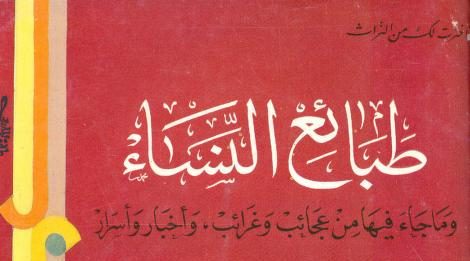 اخترت لك من التراث
طَبَائِع النِّسَاء
وَمَا جَاءَ فيهَا مِنْ عَجَائبْ وَغَرائبْ، وَأخبَار وَأسرَار